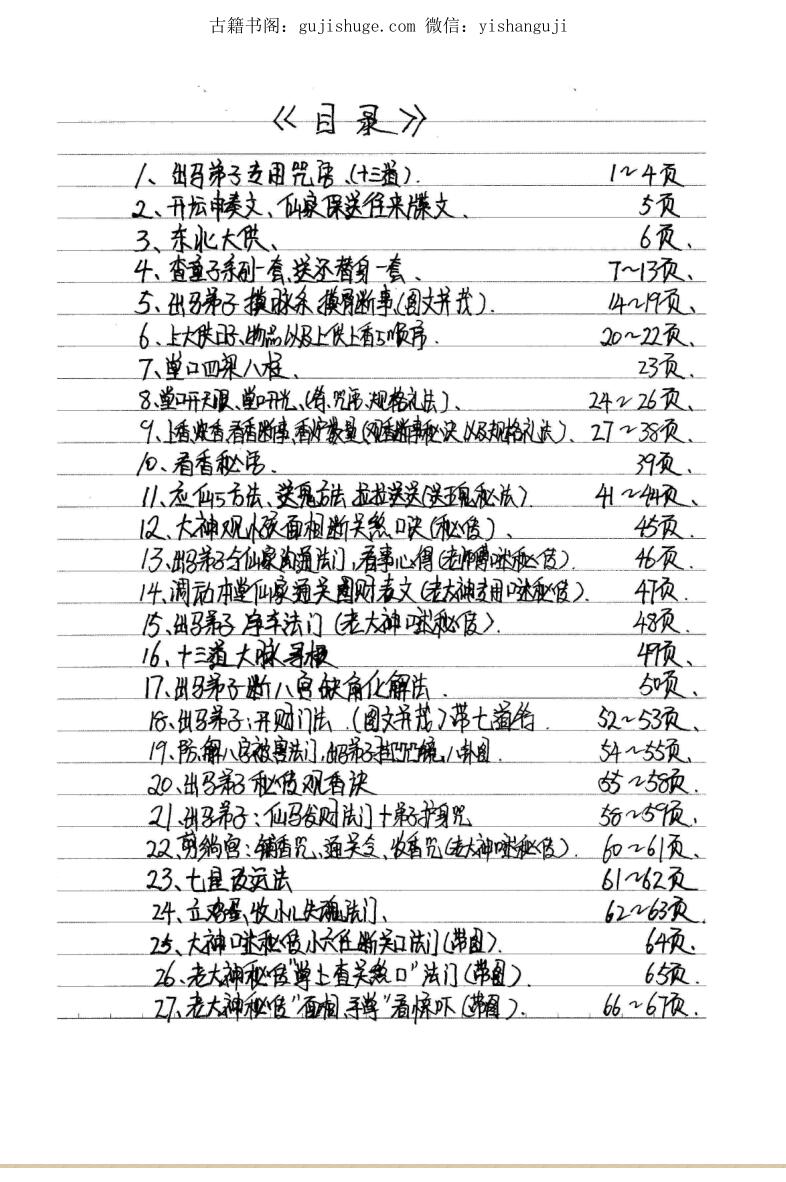 古籍书阁：gujishuge.com 微信：yishanguji
《目录》
1、出马弟子专用咒语、(十三道). 1~4页
2、开坛申奏文、仙家保送往来牒文、 5页
3、东北大供、 6页、
4、查童子系列一套、送还替身一套、 7~13页、
5、出马弟子摸脉系、摸骨断事(图文并茂). 14~19页、
6、上大供日子、物品以及上供上香5顺序. 20~22页、
7、堂口四梁八柱、 23页.
8、堂口开天眼、堂口开光、(符、咒语、规格礼法)、 24~26页、
9、上香、看香断事、香炉数量(观香断事秘决以及规格礼法). 27~38页、
10、看香秘语. 39页、
11、应仙5方法、送鬼方法 (送鬼秘法). 41~44页、
12、大神观小孩面相断关煞口决(秘传)、 45页.
13、出马弟子与仙家沟通法门,看事心得(老师傅口述秘传). 46页.
14、调动本堂仙家通关图财表文(老大神专用口述秘传). 47页.
15、出马弟子净车法门(老大神口述秘传). 48页.
16、十三道大脉寻根 49页、
17、出马弟子断八宫缺角化解法. 50页、
18、出马弟子:开财门法.(图文并茂)带七道符. 52~53页.
19、防、解八字被害法门,出马弟子 咒镜,八卦图. 54~55页、
20、出马弟子秘传观香诀 55~58页.
21、出马弟子:仙马发财法门+弟子护身咒 58~59页、
22、剪 宫:铺香咒、通关文、收香咒(老大神口述秘传). 60~61页、
23、七星改运法 61~62页
24、立鸡蛋,收小儿失魂法门、 62~63页.
25、大神口述秘传小六任断关口法门(带图). 64页.
26、老大神秘传"掌上查关煞口"法门(带图). 65页.
27、老大神秘传"面相、手掌"看惊吓(带图). 66~67页.